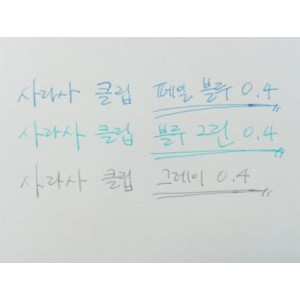 사라사 클립 페일 블루 0.4
사라사 클립 블루 그린 0.4
사라사 클립 그레이 0.4